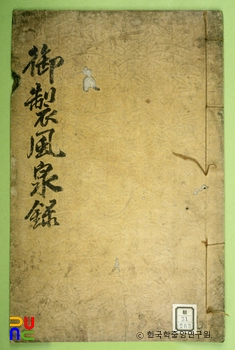 御製風泉錄
PUON
© 한국학중앙연구원